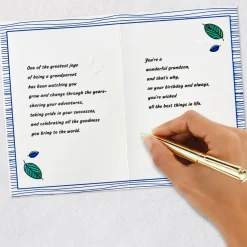 One of the greatest joys
of being a grandparent
has been watching you
grow and change through the years–
sharing your adventures,
taking pride in your successes,
and celebrating all the goodness
you bring to the world.
You're a
wonderful grandson,
and that's why,
on your birthday and always,
you're wished
all the best things in life.